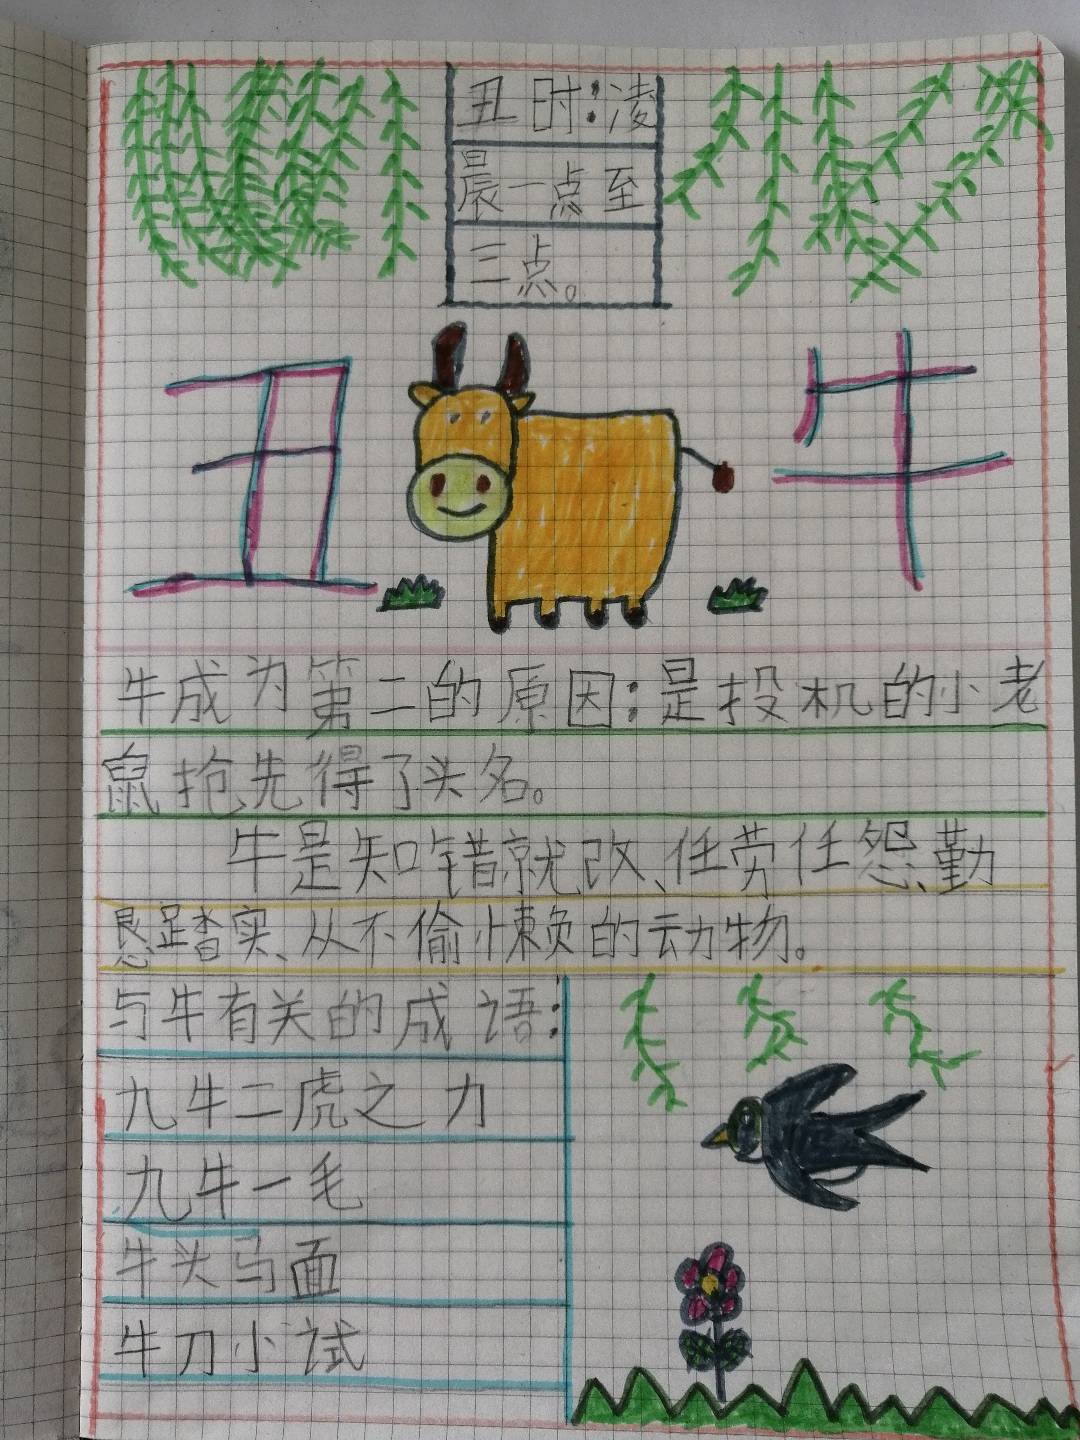 丑时:凌
晨一点至
三点。
丑 牛
牛成为第二的原因:是投机的小老
鼠抢先得了头名。
牛是知错就改、任劳任怨、勤
恳踏实、从不偷懒的动物。
与牛有关的成语:
九牛二虎之力
九牛一毛
牛头马面
牛刀小试